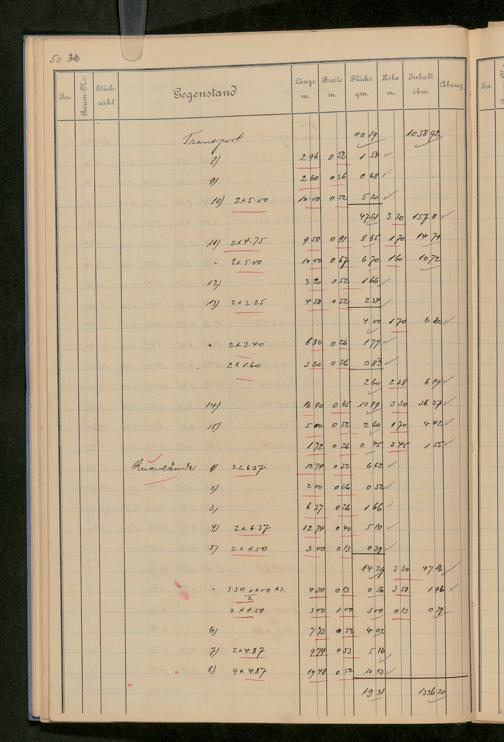 50
Pos. Raum-No. Stück-zahl Gegenstand Länge m. Breite m. Fläche qm. Höhe m. Inhalt cbm. Abzug
Transport 40 19 1038 92
8) 2 96 0 52 1 54
9) 2 60 0 26 0 68
10) 2 x 5.00 10 00 0 52 5 20
47 61 3 30 157 11
11) 2 x 4.75 9 50 0 91 8 65 1 70 14 71
" 2 x 5.00 10 00 0 67 6 70 1 60 10 72
12) 3 20 0 52 1 66
13) 2 x 2.25 4 50 0 52 2 34
4 00 1 70 6 80
" 2 x 3.40 6 80 0 26 1 77
2 x 1.60 3 20 0 26 0 83
2 60 2 38 6 19
14) 0 65 10 99 3 30 36 27
15) 5 00 0 52 2 60 1 70 4 42
1 72 0 26 0 45 3 45 1 55
1) 2 x 6.37 12 74 0 52 6 62
2) 2 00 0 26 0 52
3) 6 37 0 26 1 66
4) 2 x 6.37 12 74 0 40 5 10
5) 2 x 1.50 3 00 0 13 0 39
14 29 3 30 47 16
" 4 30 0 13 0 56 3 50 1 96
2 x 1.50 3 00 1 00 3 00 0 13 0 39
6) 7 73 0 52 4 02
7) 2 x 4.87 9 74 0 53 5 16
8) 4 x 4.87 19 48 0 52 10 13
19 31 1326 20